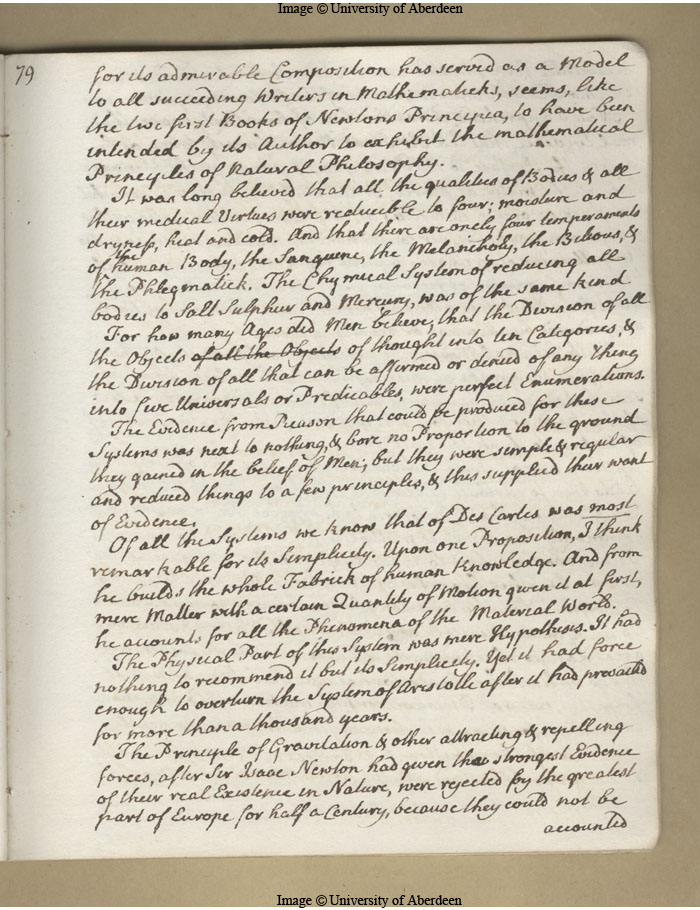 Image © University of Aberdeen
79
for its admirable Composition has served as a Model
to all succeeding Writers in Mathematicks, seems, like
the two first Books of Newtons Principia, to have been
intended by its Author to exhibit the mathematical
Principles of Natural Philosophy.
It was long believed that all the qualities of Bodies & all
their medical Virtues were reducible to four; moisture and
dryness, heat and cold. And that there are only four temperaments
of the human Body, the Sanguine, the Melancholy, the Bilious, &
the Phlegmatick. The Chymical System of reducing all
bodies to Salt Sulphur and Mercury, was of the same kind
For how many Ages did Men believe, that the Division of all
the Objects of all the Objects of thought into ten Categories, &
the Division of all that can be affirmed or denied of any Thing
into five Universals or Predicables, were perfect Enumerations.
The Evidence from Reason that could be produced for these
Systems was next to nothing, & bore no Proportion to the ground
they gained in the belief of Men; but they were simple & regular
and reduced things to a few principles, & thus supplied their want
of Evidence.
Of all the Systems we know that of Des Cartes was most
remarkable for its Simplicity. Upon one Proposition, I think
he builds the whole Fabrick of human Knowledge. And from
mere Matter with a certain Quantity of Motion given it at first,
he accounts for all the Phenomena of the Material World.
The Physical Part of this System was mere Hypothesis. It had
nothing to recommend it but its Simplicity. Yet it had force
enough to overturn the System of Aristotle after it had prevailed
for more than a thousand years.
The Principle of Gravitation & other attracting & repelling
forces, after Sir Isaac Newton had given the strongest Evidence
of their real Existence in Nature, were rejected by the greatest
part of Europe for half a Century, because they could not be
accounted
Image © University of Aberdeen